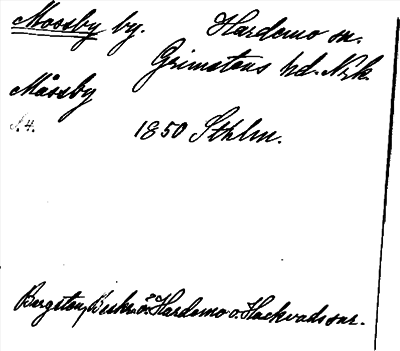 Mossby by. Hardemo sn.
Grimstens hd. Nrk.
Måssby
s. 4.
1850 Sthlm.
Bergsten, Beskr. ö. Hardemo o. Hackvads snr.